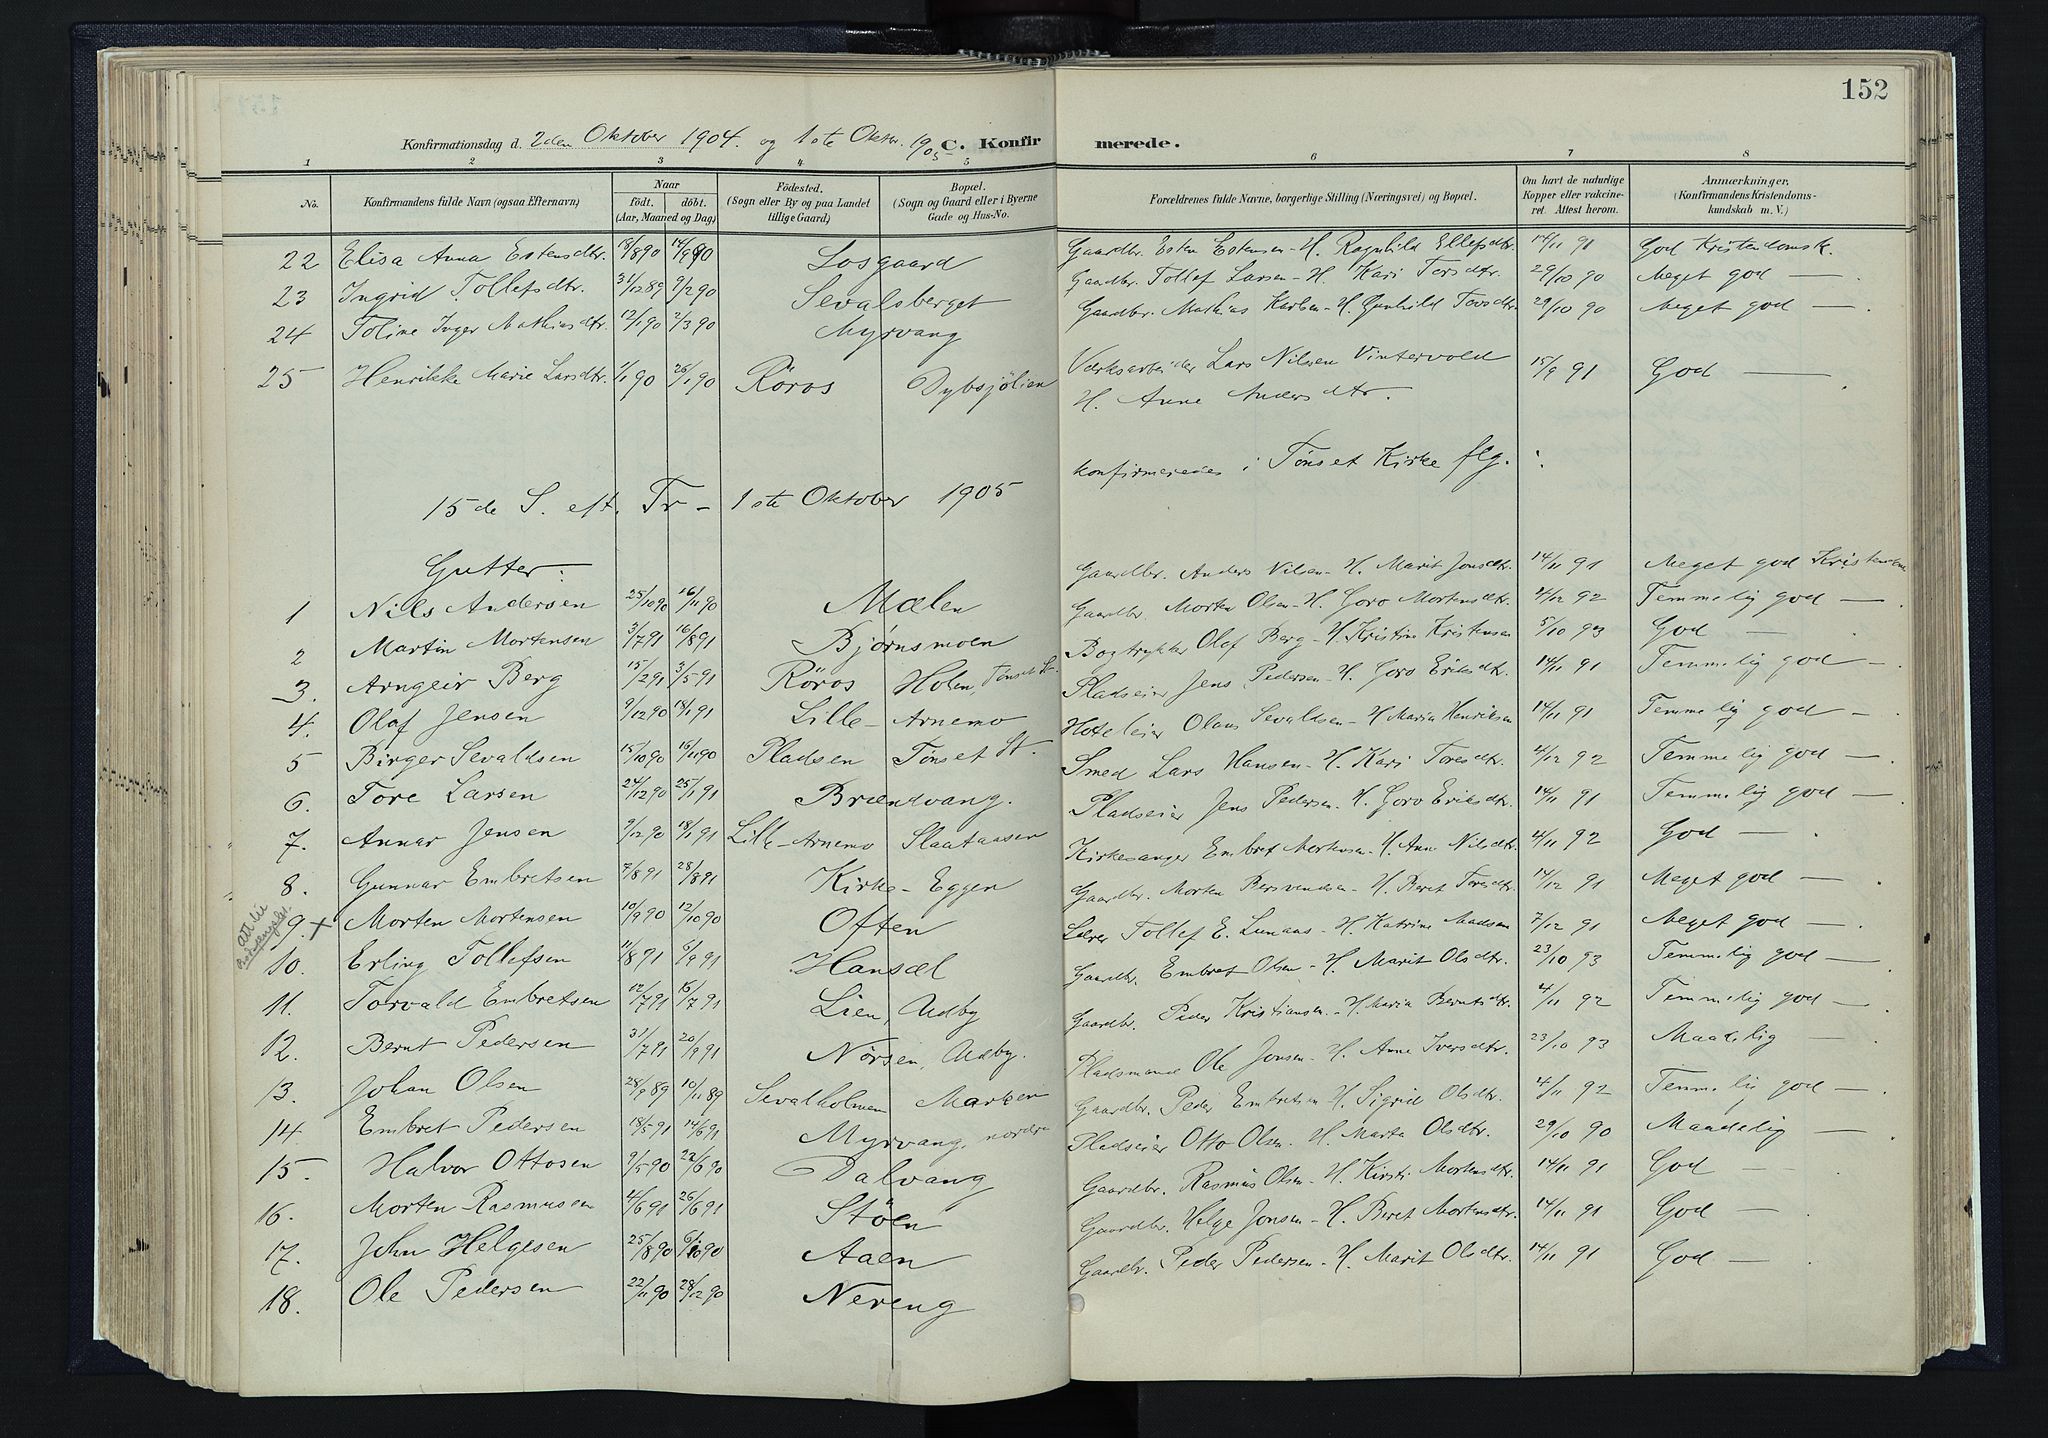 152
Konfirmationsdag d. 2den Oktober 1904. og 1ste Oktbr. 1905 C. Konfirmerede.
1 2 3 4 5 6 7 8
No. Konfirmandens fulde Navn (ogsaa Efternavn) Naar født. døbt. (Aar, Maaned og Dag) Fødested. (Sogn eller By og paa Landet tillige Gaard) Bopæl. (Sogn og Gaard eller i Byerne Gade og Hus-No. Forældrenes fulde Navne, borgerlige Stilling (Næringsvei) og Bopæl. Om havt de naturlige Kopper eller vakcineret. Attest herom. Anmærkninger. (Konfirmandens Kristendomskundskab m. V.)
22 Elisa Anna Estensdtr. 18/8 90 14/9 90 Losgaard Gaardbr. Esten Estensen - H. Ragnhild Ellefsdtr. 14/11 91 God Kristendomsk.
23 Ingrid Tollefsdtr. 31/12 89 9/2 90 Sevalsberget Gaardbr. Tollef Larsen - H. Kari Torsdtr. 29/10 90 Meget god —
24 Toline Inger Mathiasdtr. 12/1 90 2/3 90 Myrvang Gaardbr. Mathias Karlsen - H. Gunhild Tovsdtr. 29/10 90 Meget god —
25 Henrikke Marie Larsdtr. 1/1 90 26/1 90 Röros Dybsjölien Værksarbeider Lars Nilsen Vintervold 15/9 91 God —
H. Anne Andersdtr.
15de S. eft. Tr - 1ste Oktober 1905 konfirmeredes i Tønset Kirke flg. :
Gutter:
1 Nils Andersen 25/10 90 16/11 90 Mælen Gaardbr. Anders Nilsen - H. Marit Jonsdtr. 14/11 91 Meget god Kristendom
2 Martin Mortensen 3/7 91 16/8 91 Bjørnsmoen Gaardbr. Morten Olsen - H. Goro Mortensdtr. 4/12 92 Temmelig god —
3. Arngeir Berg 15/2 91 3/5 91 Röros Holen, Tønset St. Bogtrykker Olaf Berg - H. Kristine Kristensen 5/10 93 God —
4. Olaf Jensen 9/12 90 18/1 91 Lille-Arnemo Pladseier Jens Pedersen - H. Goro Eriksdtr. 14/11 91 Temmelig god —
5 Birger Sevaldsen 15/10 90 16/11 90 Pladsen Tønset St. Hoteleier Olaus Sevaldsen - H. Maria Henriksen 14/11 91 Temmelig god —
6. Tore Larsen 24/12 90 25/1 91 Brændvang. Smed Lars Hansen - H. Kari Toresdtr. 4/12 92 Temmelig god —
7. Annar Jensen 9/12 90 18/1 91 Lille-Arnemo Slaataasen Pladseier Jens Pedersen - H. Goro Eriksdtr. 14/11 91 Temmelig god —
8. Gunnar Embretsen 7/8 91 28/8 91 Kirke-Eggen Kirkesanger Embret Mortensen - H. Ane Nilsdtr. 4/11 92 God —
9. + Morten Mortensen 10/9 90 12/10 90 Often Gaardbr. Morten Bersvendsen - H. Beret Toresdtr. 14/12 91 Meget god —
10. Erling Tollefsen 11/8 91 6/9 91 Hansæl Lærer Tollef E. Lunaas - H. Katrine Madsen 7/12 91 Meget god —
11. Torvald Embretsen 12/7 91 15/7 91 Lien, Udby Gaardbr. Embret Olsen - H. Marit Olsdtr. 23/10 93 Temmelig god —
12. Bernt Pedersen 31/7 91 20/9 91 Nørsen, Udby. Gaardbr. Peder Kristiansen - H. Maria Berntsdtr. 4/11 92 Temmelig god —
13. Johan Olsen 28/9 89 10/11 89 Sevalholmen Marken Pladsmand Ole Jonsen - H. Anne Iversdtr. 23/10 93 Maadelig —
14. Embret Pedersen 18/5 91 14/6 91 Myrvang, nordre Gaardbr. Peder Embretsen - H. Sigrid Olsdtr. 4/11 92 Temmelig god —
15. Halvor Ottosen 9/5 90 22/6 90 Dalvang Pladseier Otto Olsen - H. Marta Olsdtr. 29/10 90 Maadelig —
16. Morten Rasmusen 4/6 91 26/6 91 Støen Gaardbr. Rasmus Olsen - H. Kirsti Mortensdtr. 14/11 91 God —
17. John Helgesen 25/8 90 6/10 90 Aaen Gaardbr. Helge Jonsen - H. Beret Mortensdtr. 14/11 91 God —
18. Ole Pedersen 22/11 90 28/12 90 Nereng Gaardbr. Peder Pedersen - H. Marit Olsdtr. 14/11 91 God —